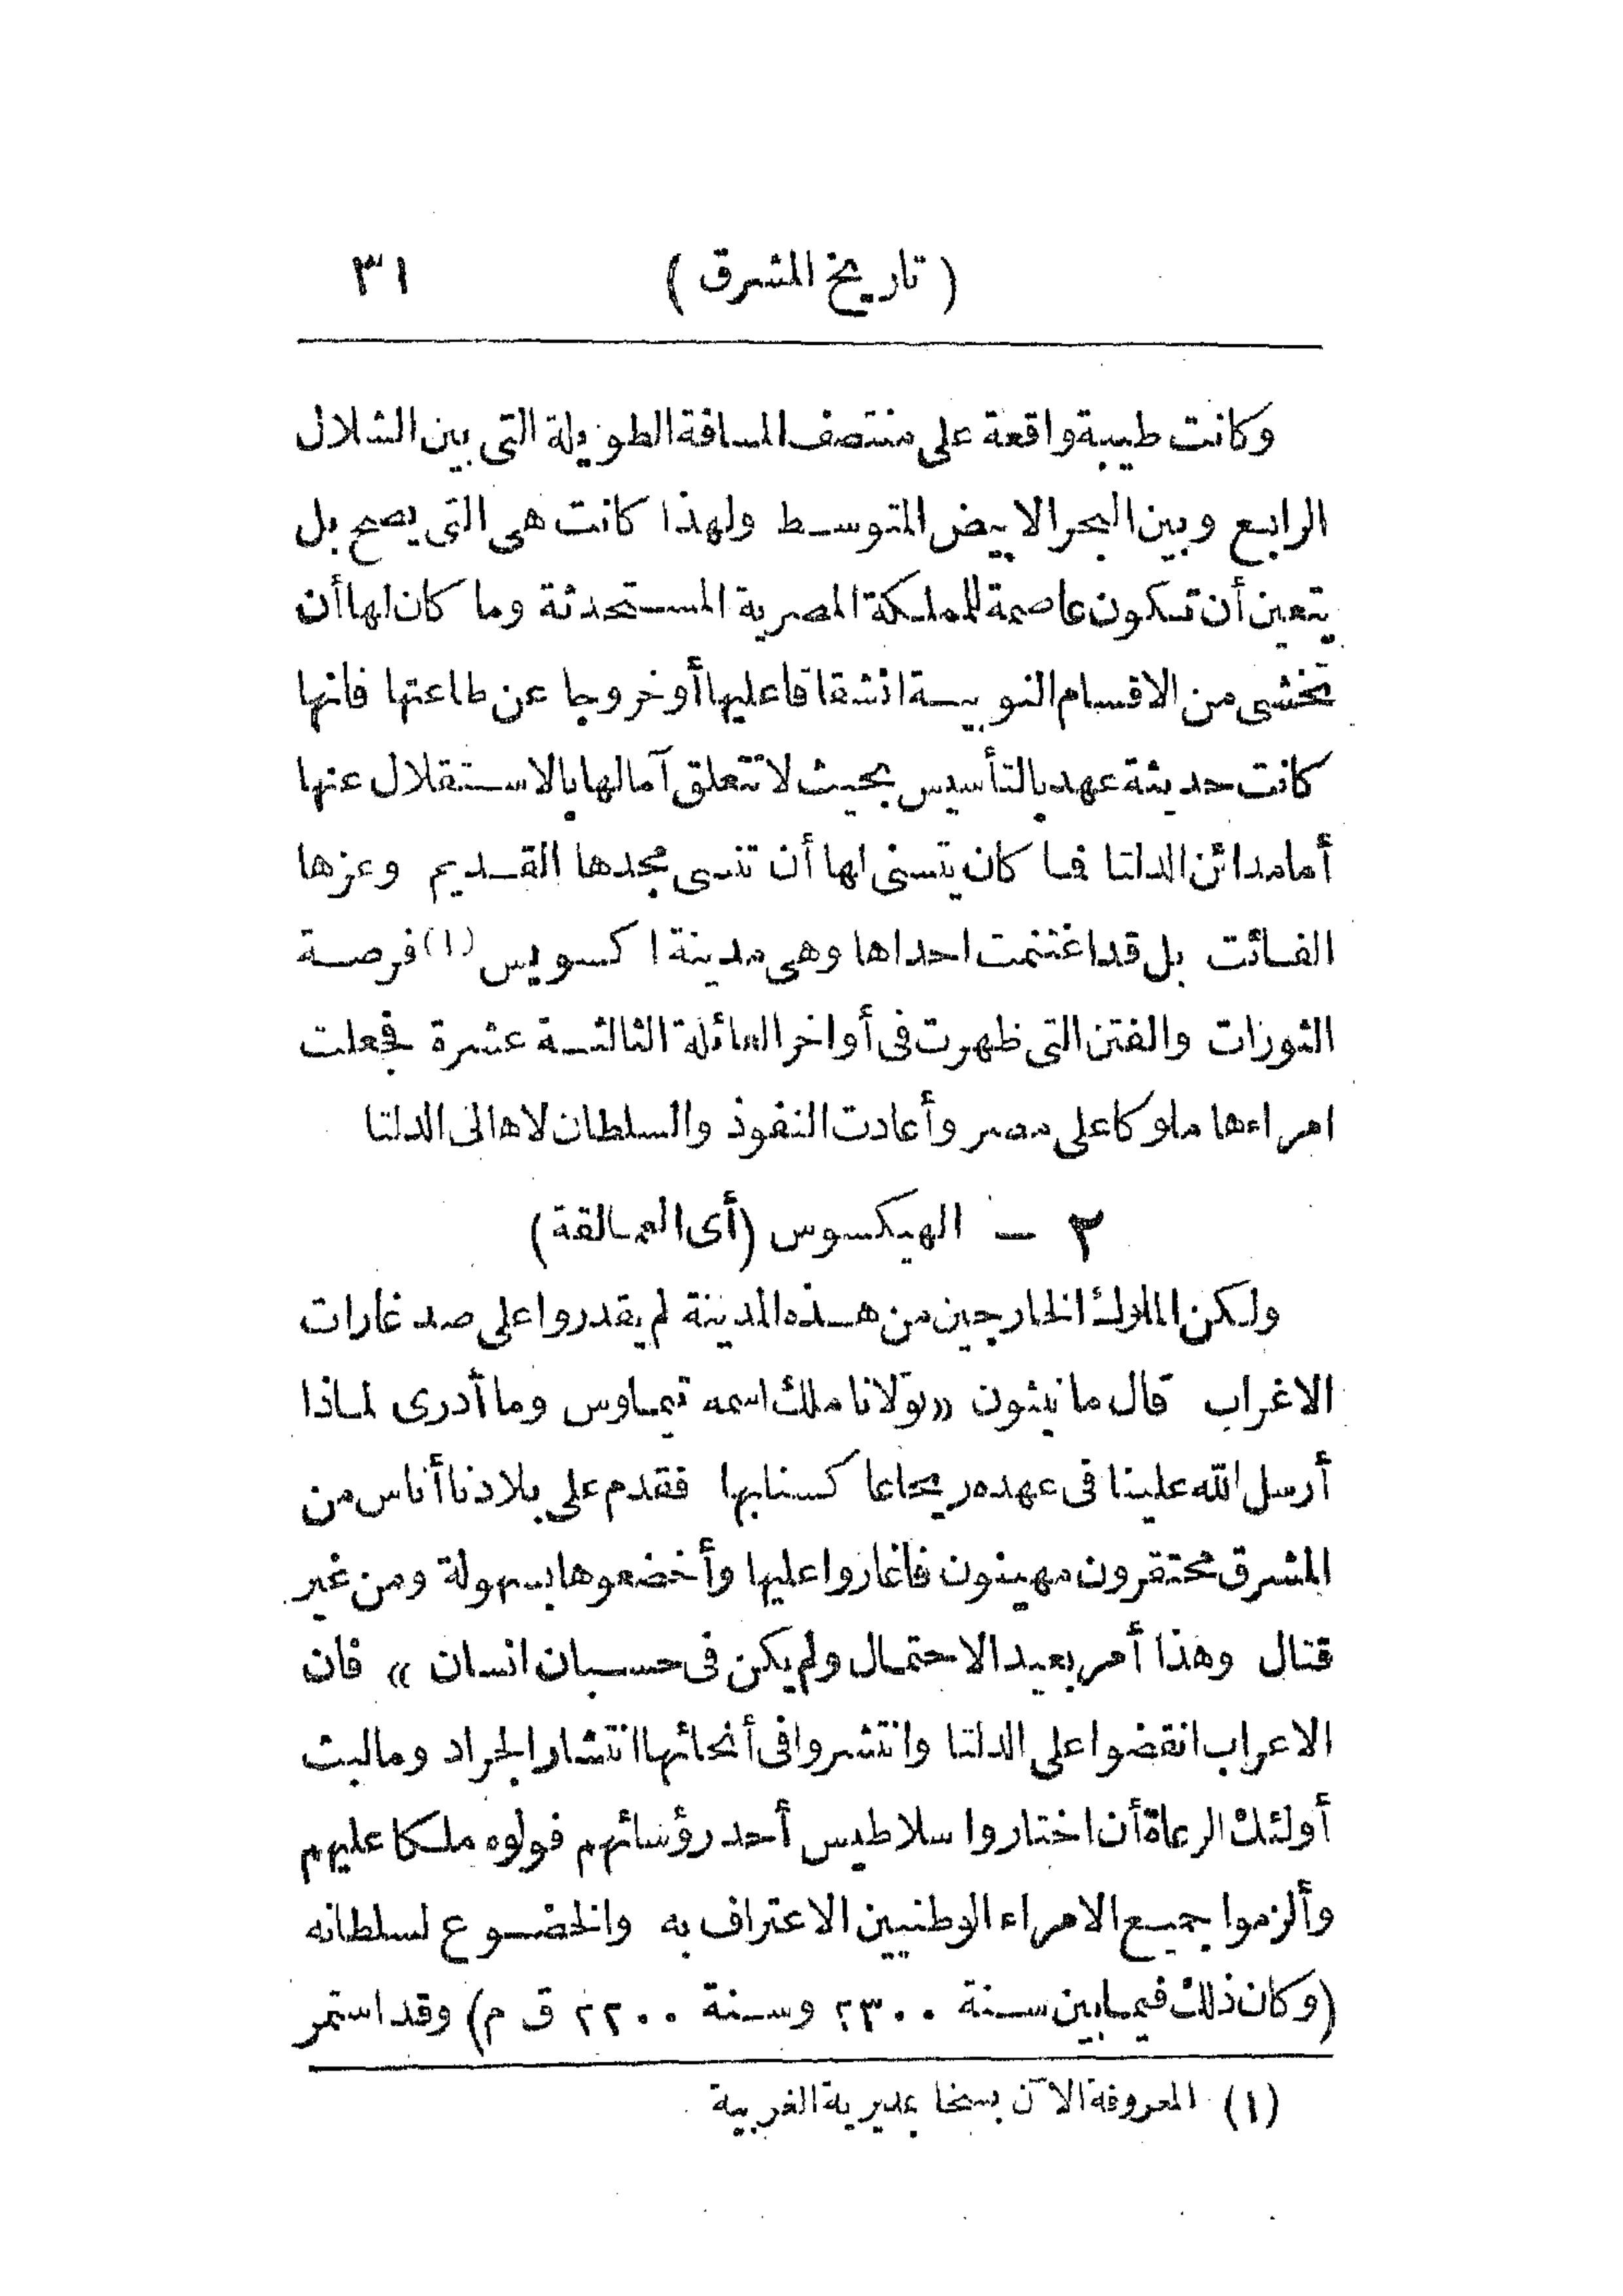 ( تاريخ المشرق ) ٣١
وكانت طيبة واقعة على منتصف المسافة الطويلة التى بين الشلال
الرابع وبين البحر الابيض المتوسط ولهذا كانت هى التى يصح بل
يتعين أن تكون عاصمة للملكة المصرية المستحدثة وما كان لها أن
تخشى من الاقسام النوبية انشقاقا عليها أو خروجا عن طاعتها فانها
كانت حديثة عهد بالتأسيس بحيث لا تتعلق آمالها بالاستقلال عنها
أما مدائن الدلتا فما كان يتسنى لها أن تنسى مجدها القديم وعزها
الفائت بل قد اغتنمت احداها وهى مدينة اكسويس (١) فرصة
الثورات والفتن التى ظهرت فى أواخر العائلة الثالثة عشرة فجعلت
امراءها ملوكا على مصر وأعادت النفوذ والسلطان لاهالى الدلتا
٢ – الهيكسوس (أى العمالقة)
ولكن الملوك الخارجين من هذه المدينة لم يقدروا على صد غارات
الاغراب قال مانيثون «تولانا ملك اسمه تيماوس وما أدرى لماذا
أرسل الله علينا فى عهده ريحا عاكستنا بها فقدم على بلادنا أناس من
المشرق محتقرون مهينون فاغاروا عليها وأخضعوها بسهولة ومن غير
قتال وهذا أمر بعيد الاحتمال ولم يكن فى حسبان انسان» فان
الاعراب انقضوا على الدلتا وانتشروا فى أنحائها انتشار الجراد وما لبث
أولئك الرعاة أن اختاروا سلاطيس أحد رؤسائهم فولوه ملكا عليهم
وألزموا جميع الامراء الوطنيين الاعتراف به والخضوع لسلطانه
(وكان ذلك فيما بين سنة ٢٣٠٠ وسنة ٢٢٠٠ ق م) وقد استمر
(١) المعروفة الآن بسخا بمديرية الغربية